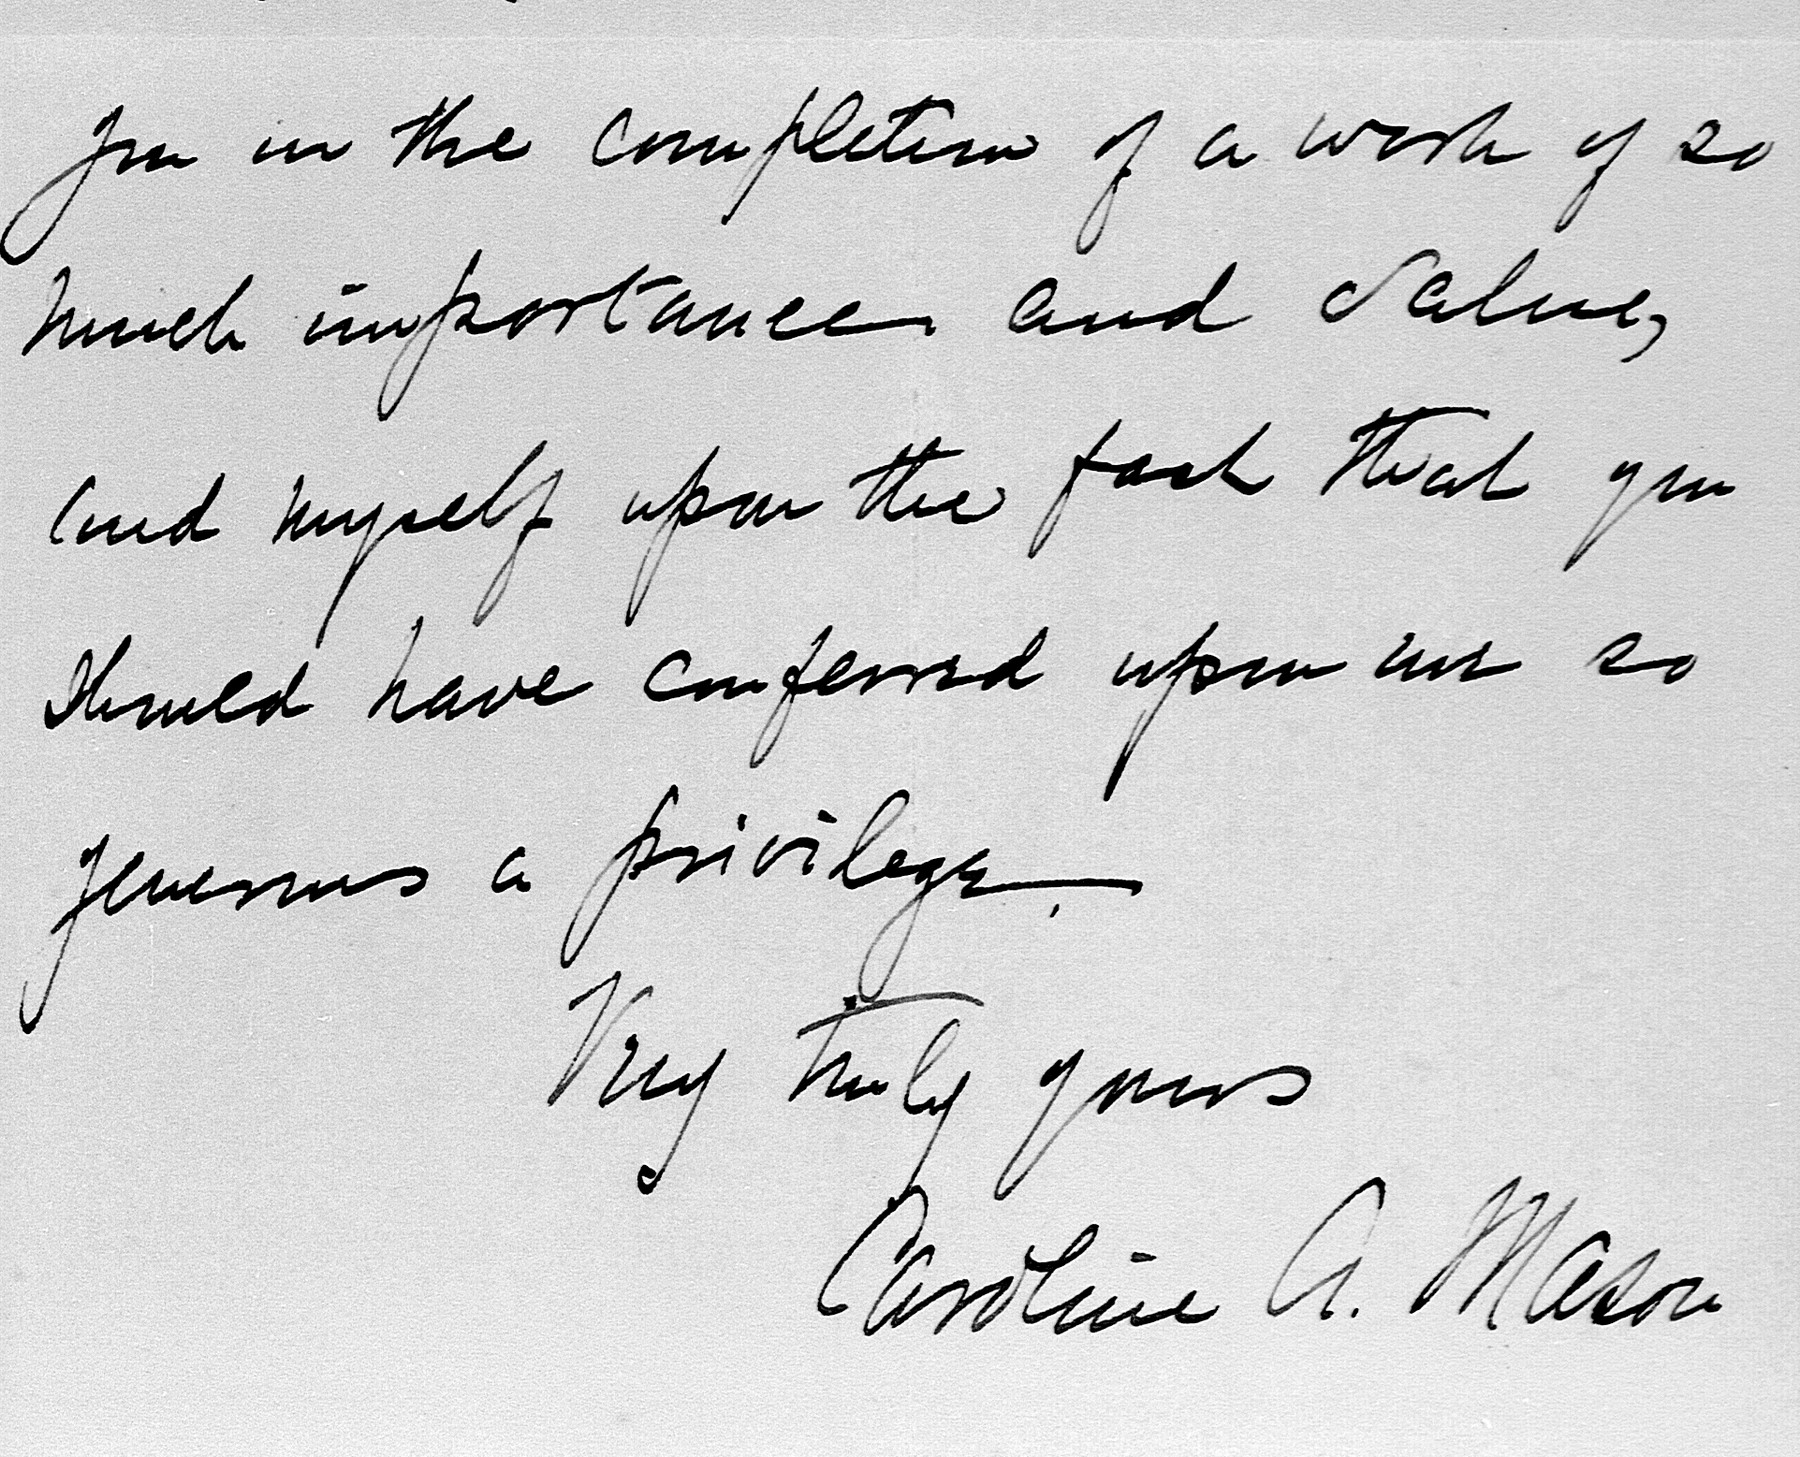 you in the completion of a work of so
much importance and value,
and myself upon the fact that you
should have conferred upon me so
generous a privilege.
Very truly yours
Caroline A. Mason